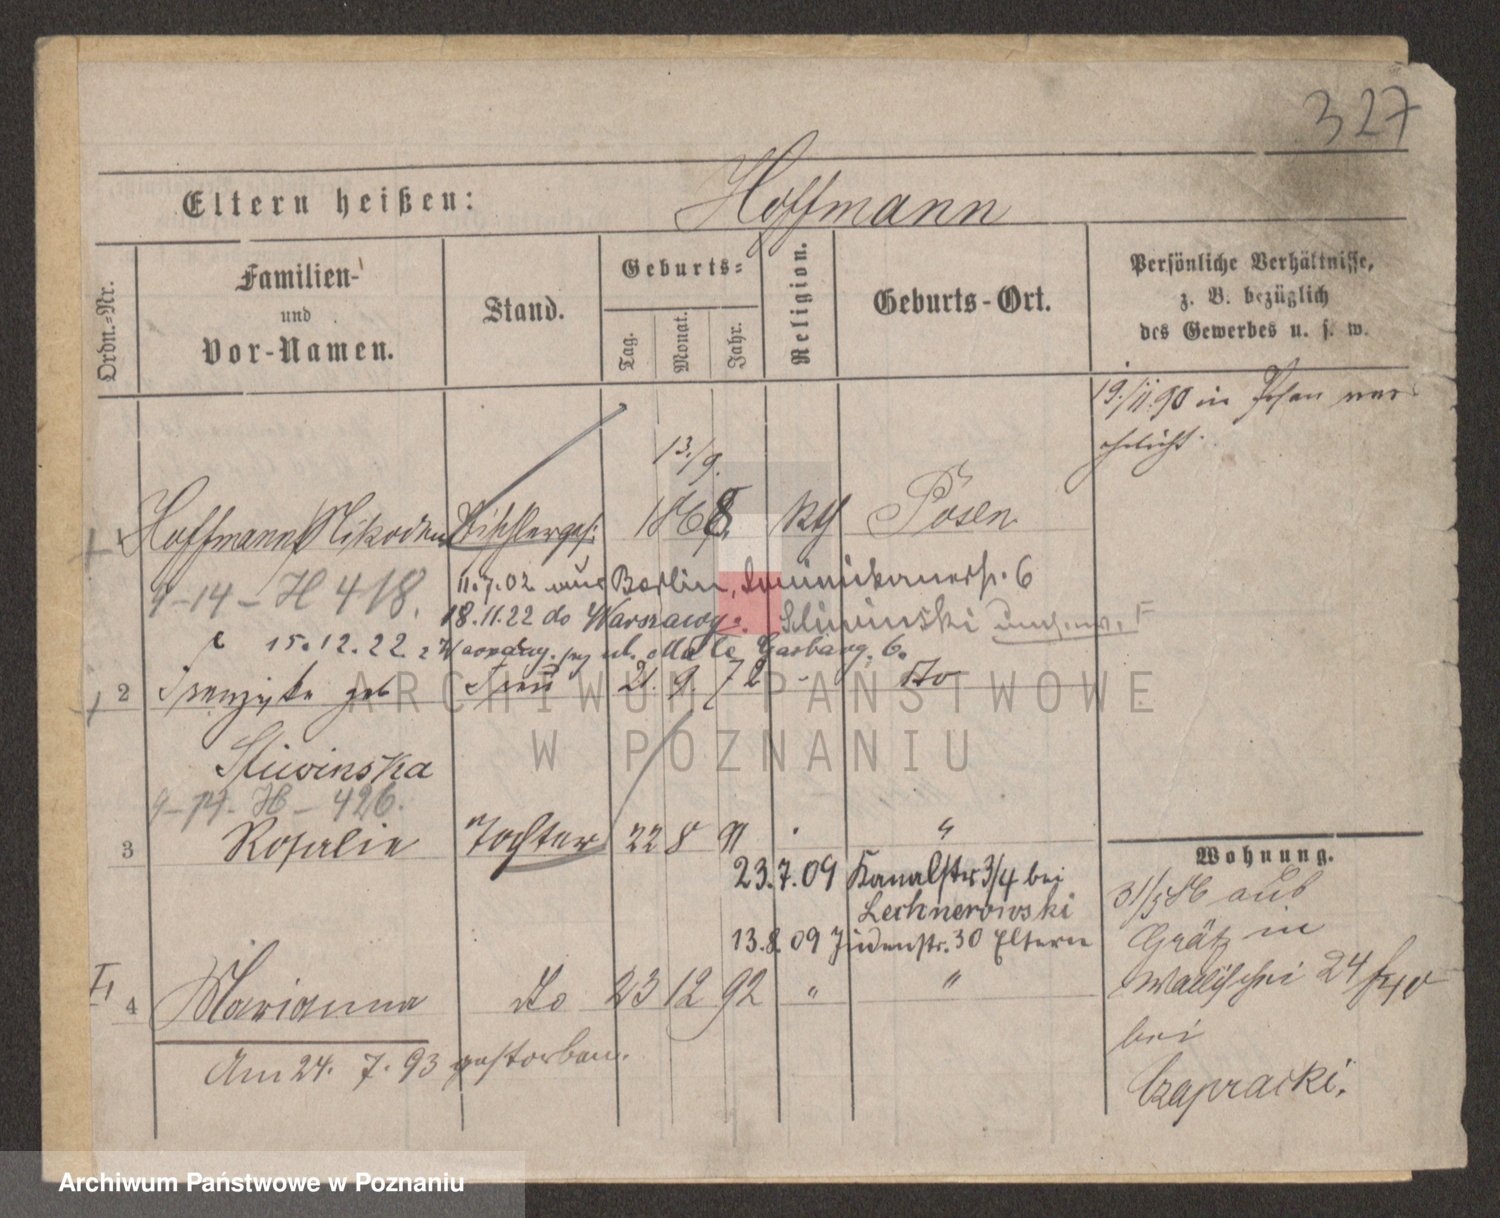 327
Eltern heißen: Hoffmann
Ordn.-Nr.
Familien-
und
Vor-Namen.
Stand.
Geburts-
Tag.
Monat.
Jahr.
Religion.
Geburts-Ort.
Persönliche Verhältnisse,
z. B. bezüglich
des Gewerbes u. s. w.
19./11.90 in Posen ver-
ehelicht.
13./9.
1 Hoffmann Nikodem Tischlerges. 1868. kth Posen
9-14-H 418.
11.7.02 aus Berlin, Dominikanerstr. 6
18.11.22 do Warszawy. Sliwinski
15.12.22 z Warszawy. ul. Małe Garbary. 6.
2 Franziska geb Frau 21. 9. 72 - do
Sliwinska
9-14-H-426.
3 Rosalie Tochter 22 8 91 " "
23.7.09 Kanalstr 3/4 bei
Lechnerowski
13.8.09 Judenstr. 30 Eltern
4 Marianna do 23 12 92 " "
Am 24. 7. 93 gestorben.
Wohnung.
31/5 96 aus
Grätz in
Wallischei 24
bei
Czapracki.
ARCHIWUM PAŃSTWOWE
W POZNANIU
Archiwum Państwowe w Poznaniu